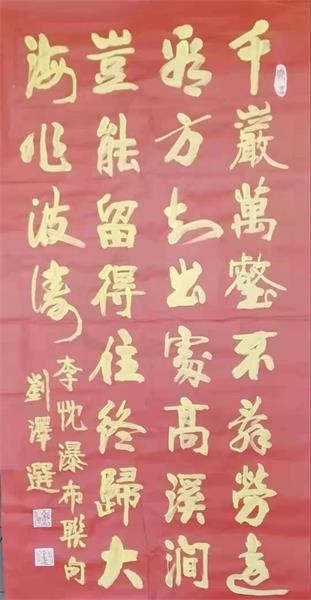 千巖萬壑不辞勞遠
看方知出處高溪澗
豈能留得住終歸大
海作波濤
李忱瀑布聯句
劉澤選